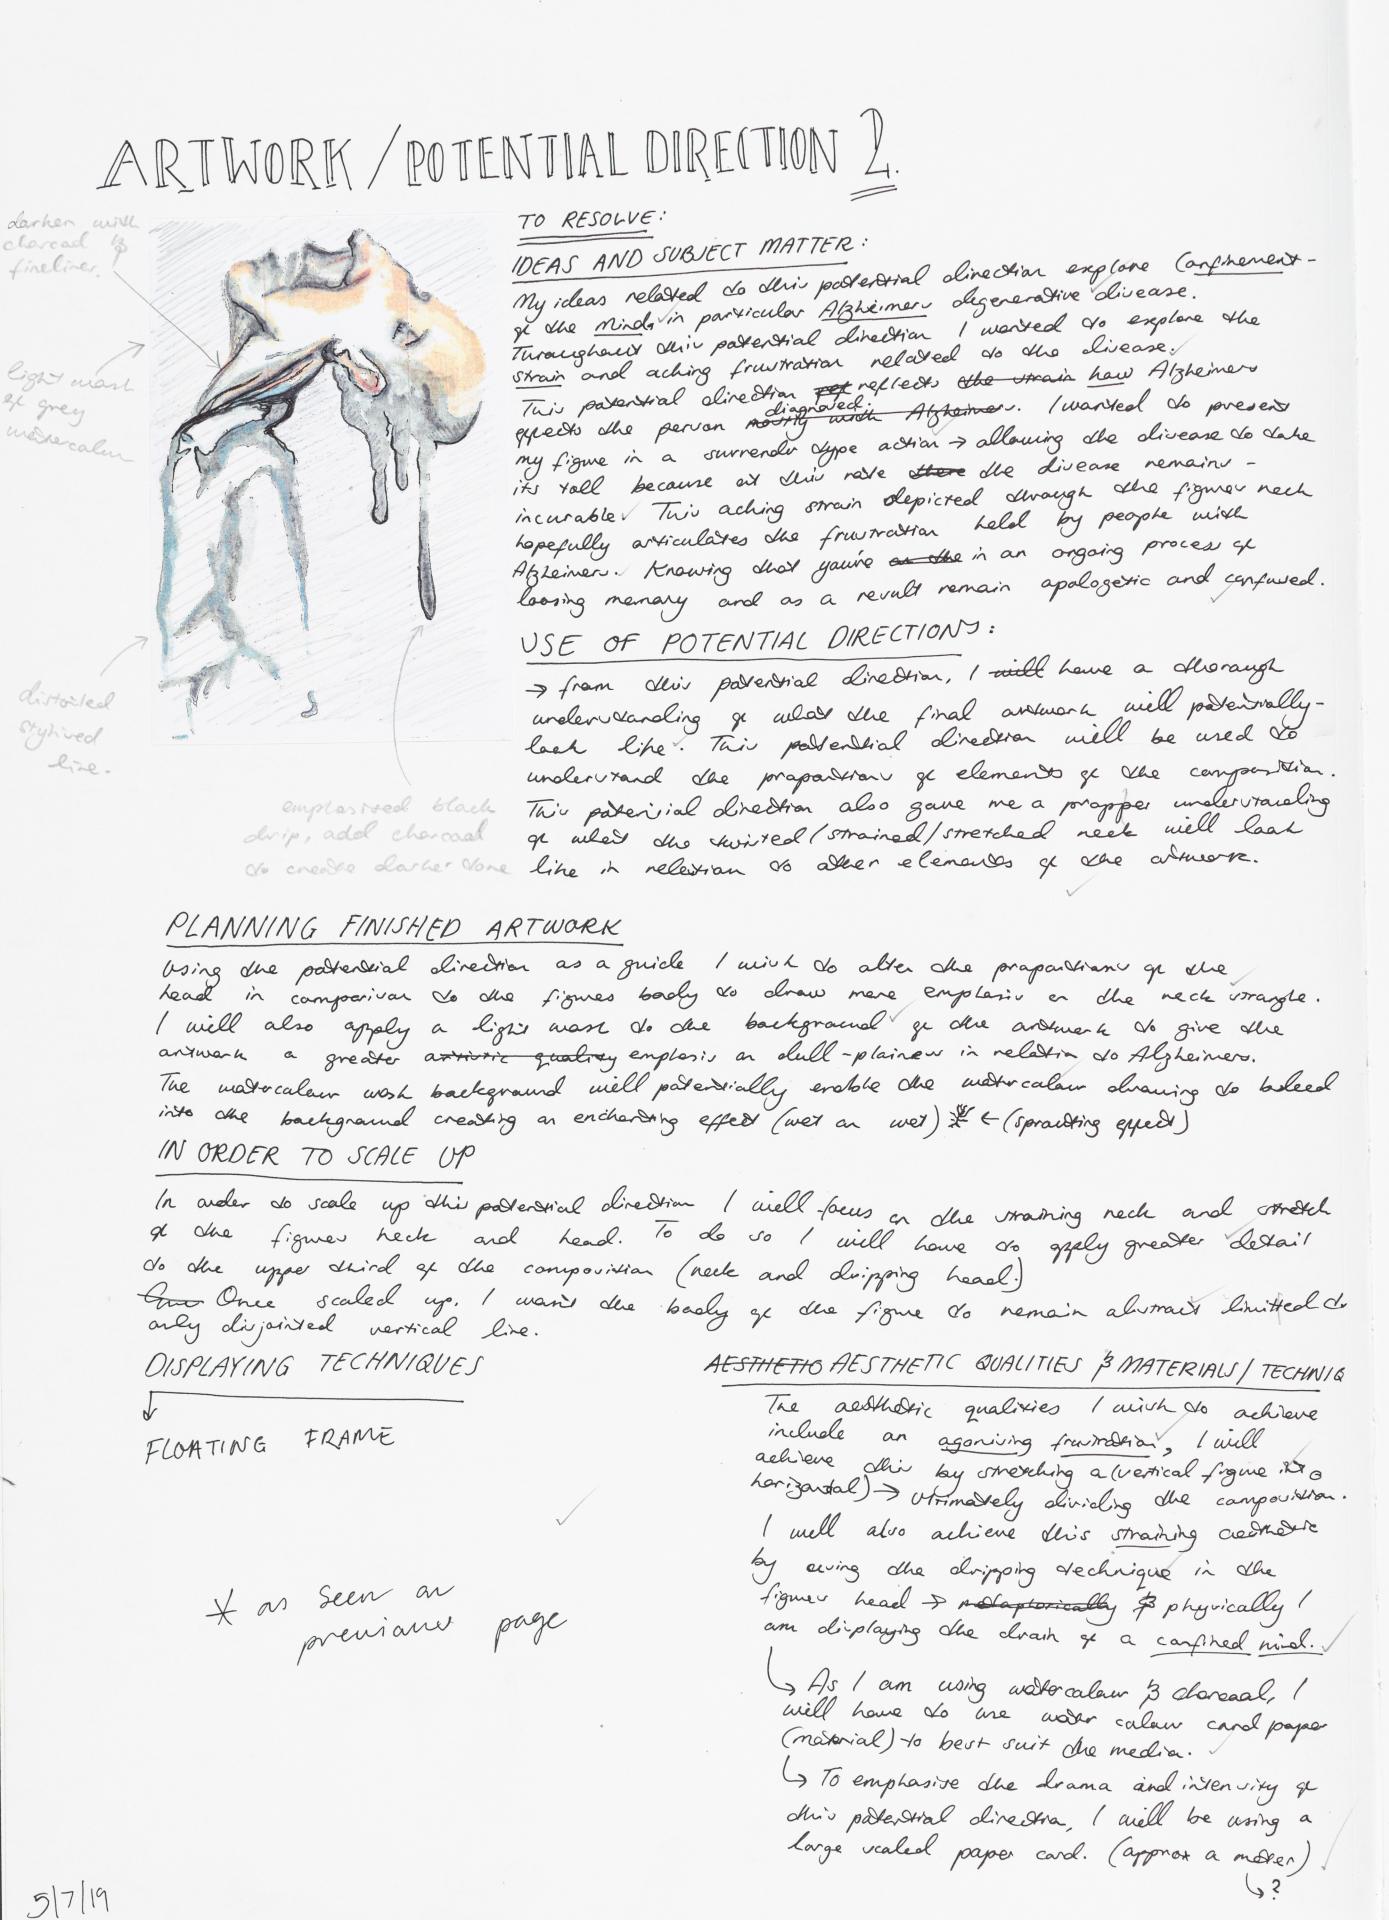 ARTWORK / POTENTIAL DIRECTION 2.
darken with
charcoal &
fineliner.
light wash
of grey
watercolour
distorted
stylised
line.
emphasised black
drip, add charcoal
to create darker tone
TO RESOLVE:
IDEAS AND SUBJECT MATTER:
My ideas related to this potential direction explore Confinement -
of the Minds in particular Alzheimers degenerative disease.
Throughout this potential direction I wanted to explore the
strain and aching frustration related to the disease.
This potential direction ref reflects the strain how Alzheimers
effects the person diagnosed. mostly with Alzheimers. I wanted to present
my figure in a surrender type action → allowing the disease to take
its toll because at this rate there the disease remains -
incurable. This aching strain depicted through the figures neck
hopefully articulates the frustration held by people with
Alzheimers. Knowing that you're on the in an ongoing process of
loosing memory and as a result remain apologetic and confused.
USE OF POTENTIAL DIRECTIONS:
→ from this potential direction, I will have a thorough
understanding of what the final artwork will potentially -
look like. This potential direction will be used to
understand the propartions of elements of the composition.
This potential direction also gave me a propper understanding
of what the twisted/strained/stretched neck will look
like in relation to other elements of the artwork.
PLANNING FINISHED ARTWORK
Using the potential direction as a guide I wish to alter the propartions of the
head in comparison to the figures body to draw more emphasis on the neck strangle.
I will also apply a light wash to the background of the artwork to give the
artwork a greater artistic quality emphasis on dull-plainess in relation to Alzheimers.
The watercolour wash background will potentially enable the watercolour drawing to bleed
into the background creating an enchanting effect (wet on wet) ← (sprouting effect)
IN ORDER TO SCALE UP
In order to scale up this potential direction I will focus on the straining neck and stretch
of the figures neck and head. To do so I will have to apply greater detail
to the upper third of the composition (neck and dripping head.)
Once scaled up, I want the body of the figure to remain abstract limitted to
only disjointed vertical line.
DISPLAYING TECHNIQUES
FLOATING FRAME
* as seen on
previous page
AESTHETIC AESTHETIC QUALITIES & MATERIALS/ TECHNIQ
The aesthetic qualities I wish to achieve
include an agonising frustration, I will
achieve this by stretching a (vertical figure into a
horizontal) → ultimately dividing the composition.
I will also achieve this straining aesthetic
by using the dripping technique in the
figures head → metaphorically & physically I
am displaying the drain of a confined mind.
↳ As I am using watercolour & charcoal, I
will have to use water colour card paper
(material) to best suit the media.
↳ To emphasise the drama and intensity of
this potential direction, I will be using a
large scaled paper card. (approx a meter)
↳ ?
5/7/19